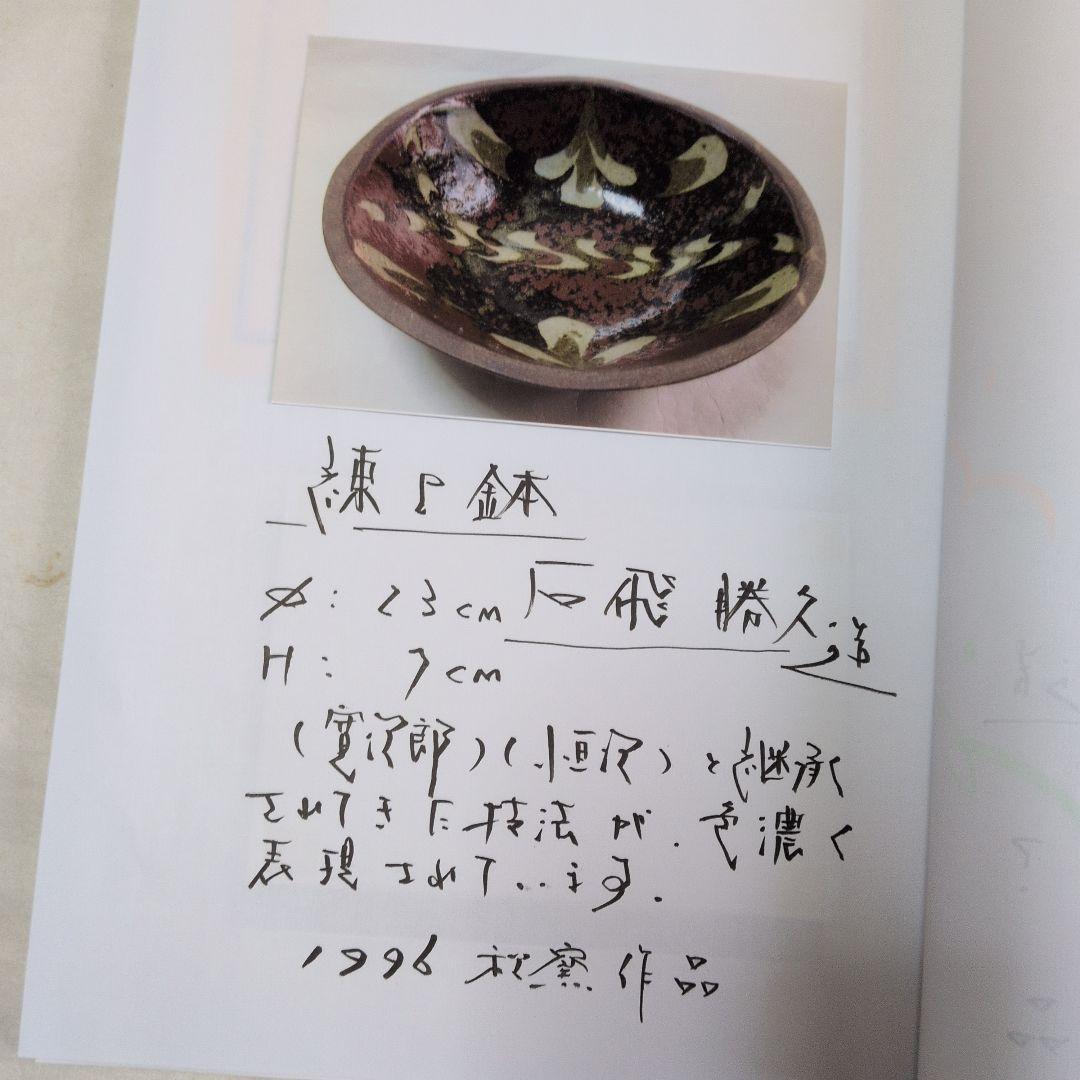 練上鉢
φ: 23cm 石飛 勝久 造
H: 7cm
(寛次郎)(恒次)と継承
されてきた技法が、色濃く
表現されています.
1996 秋窯作品